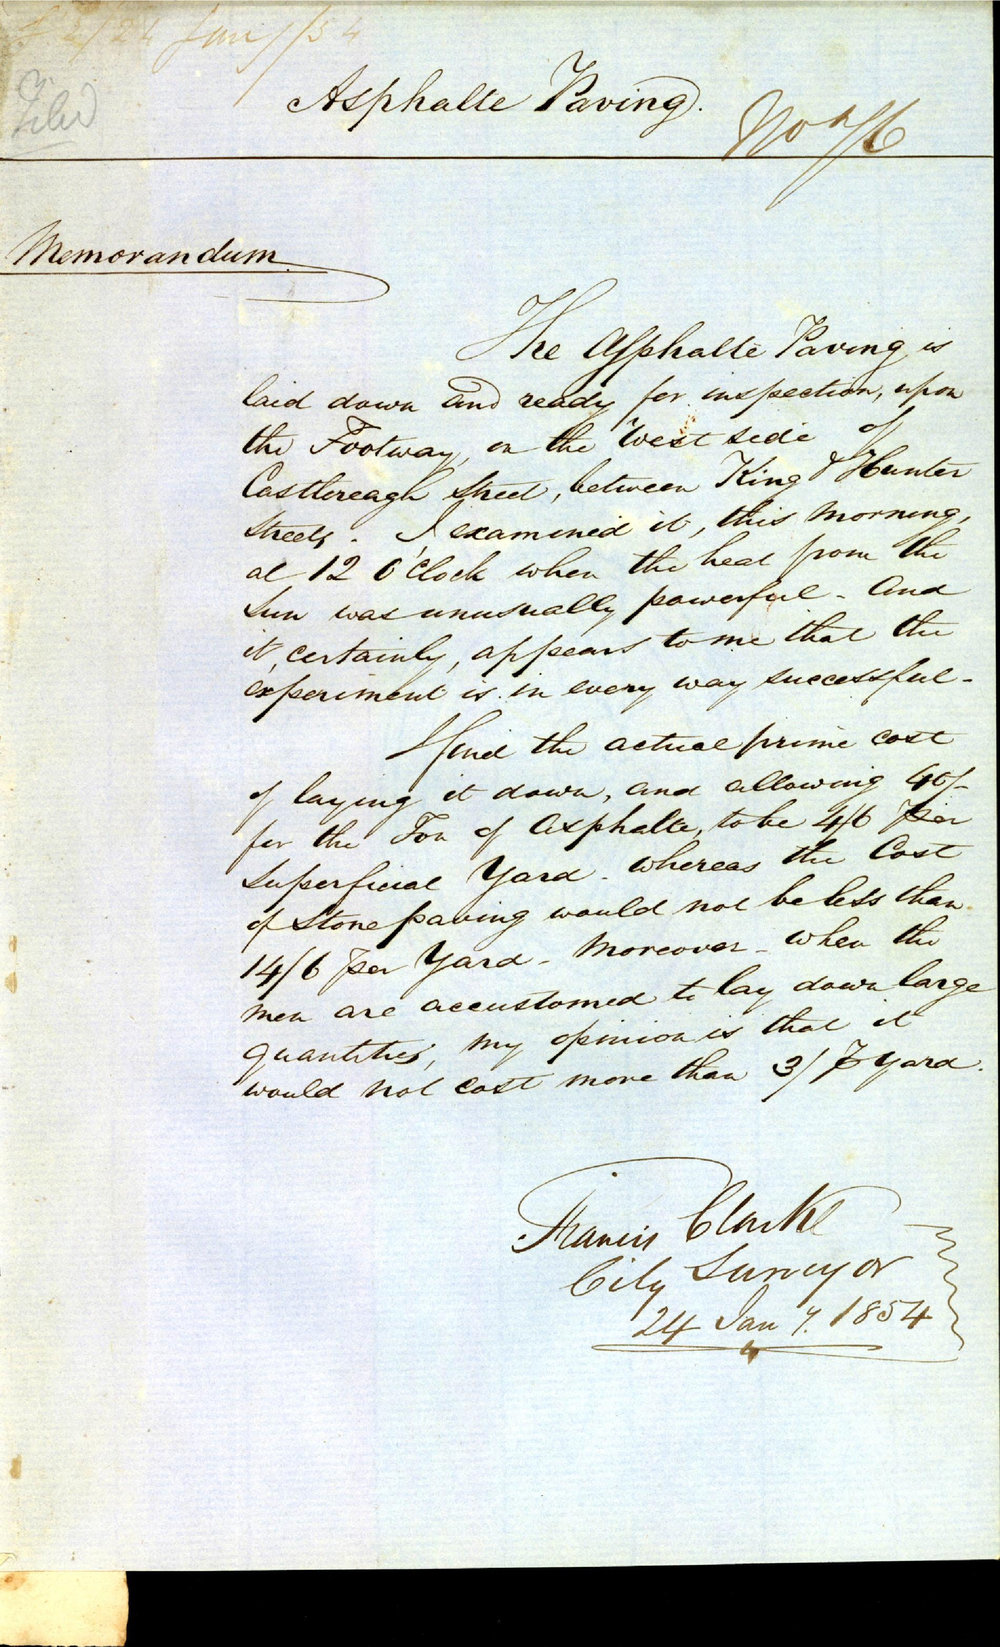 24 Jany /54
Filed
Asphalte Paving.
No 76
Memorandum
The Asphalte Paving is
laid down and ready for inspection, upon
the Footway, on the West side of
Castlereagh Street, between King & Hunter
Streets. I examined it, this morning,
at 12 O'Clock when the heat from the
Sun was unusually powerful - And
it, certainly, appears to me that the
experiment is in every way successful -
I find the actual prime cost
of laying it down, and allowing 40/-
for the Ton of Asphalte, to be 4/6 per
Superficial Yard - Whereas the Cost
of Stone paving would not be less than
14/6 per Yard - Moreover - when the
men are accustomed to lay down large
quantities, my opinion is that it
would not cost more than 3/ ⅌ Yard.
Francis Clarke
City Surveyor
24 Jany. 1854